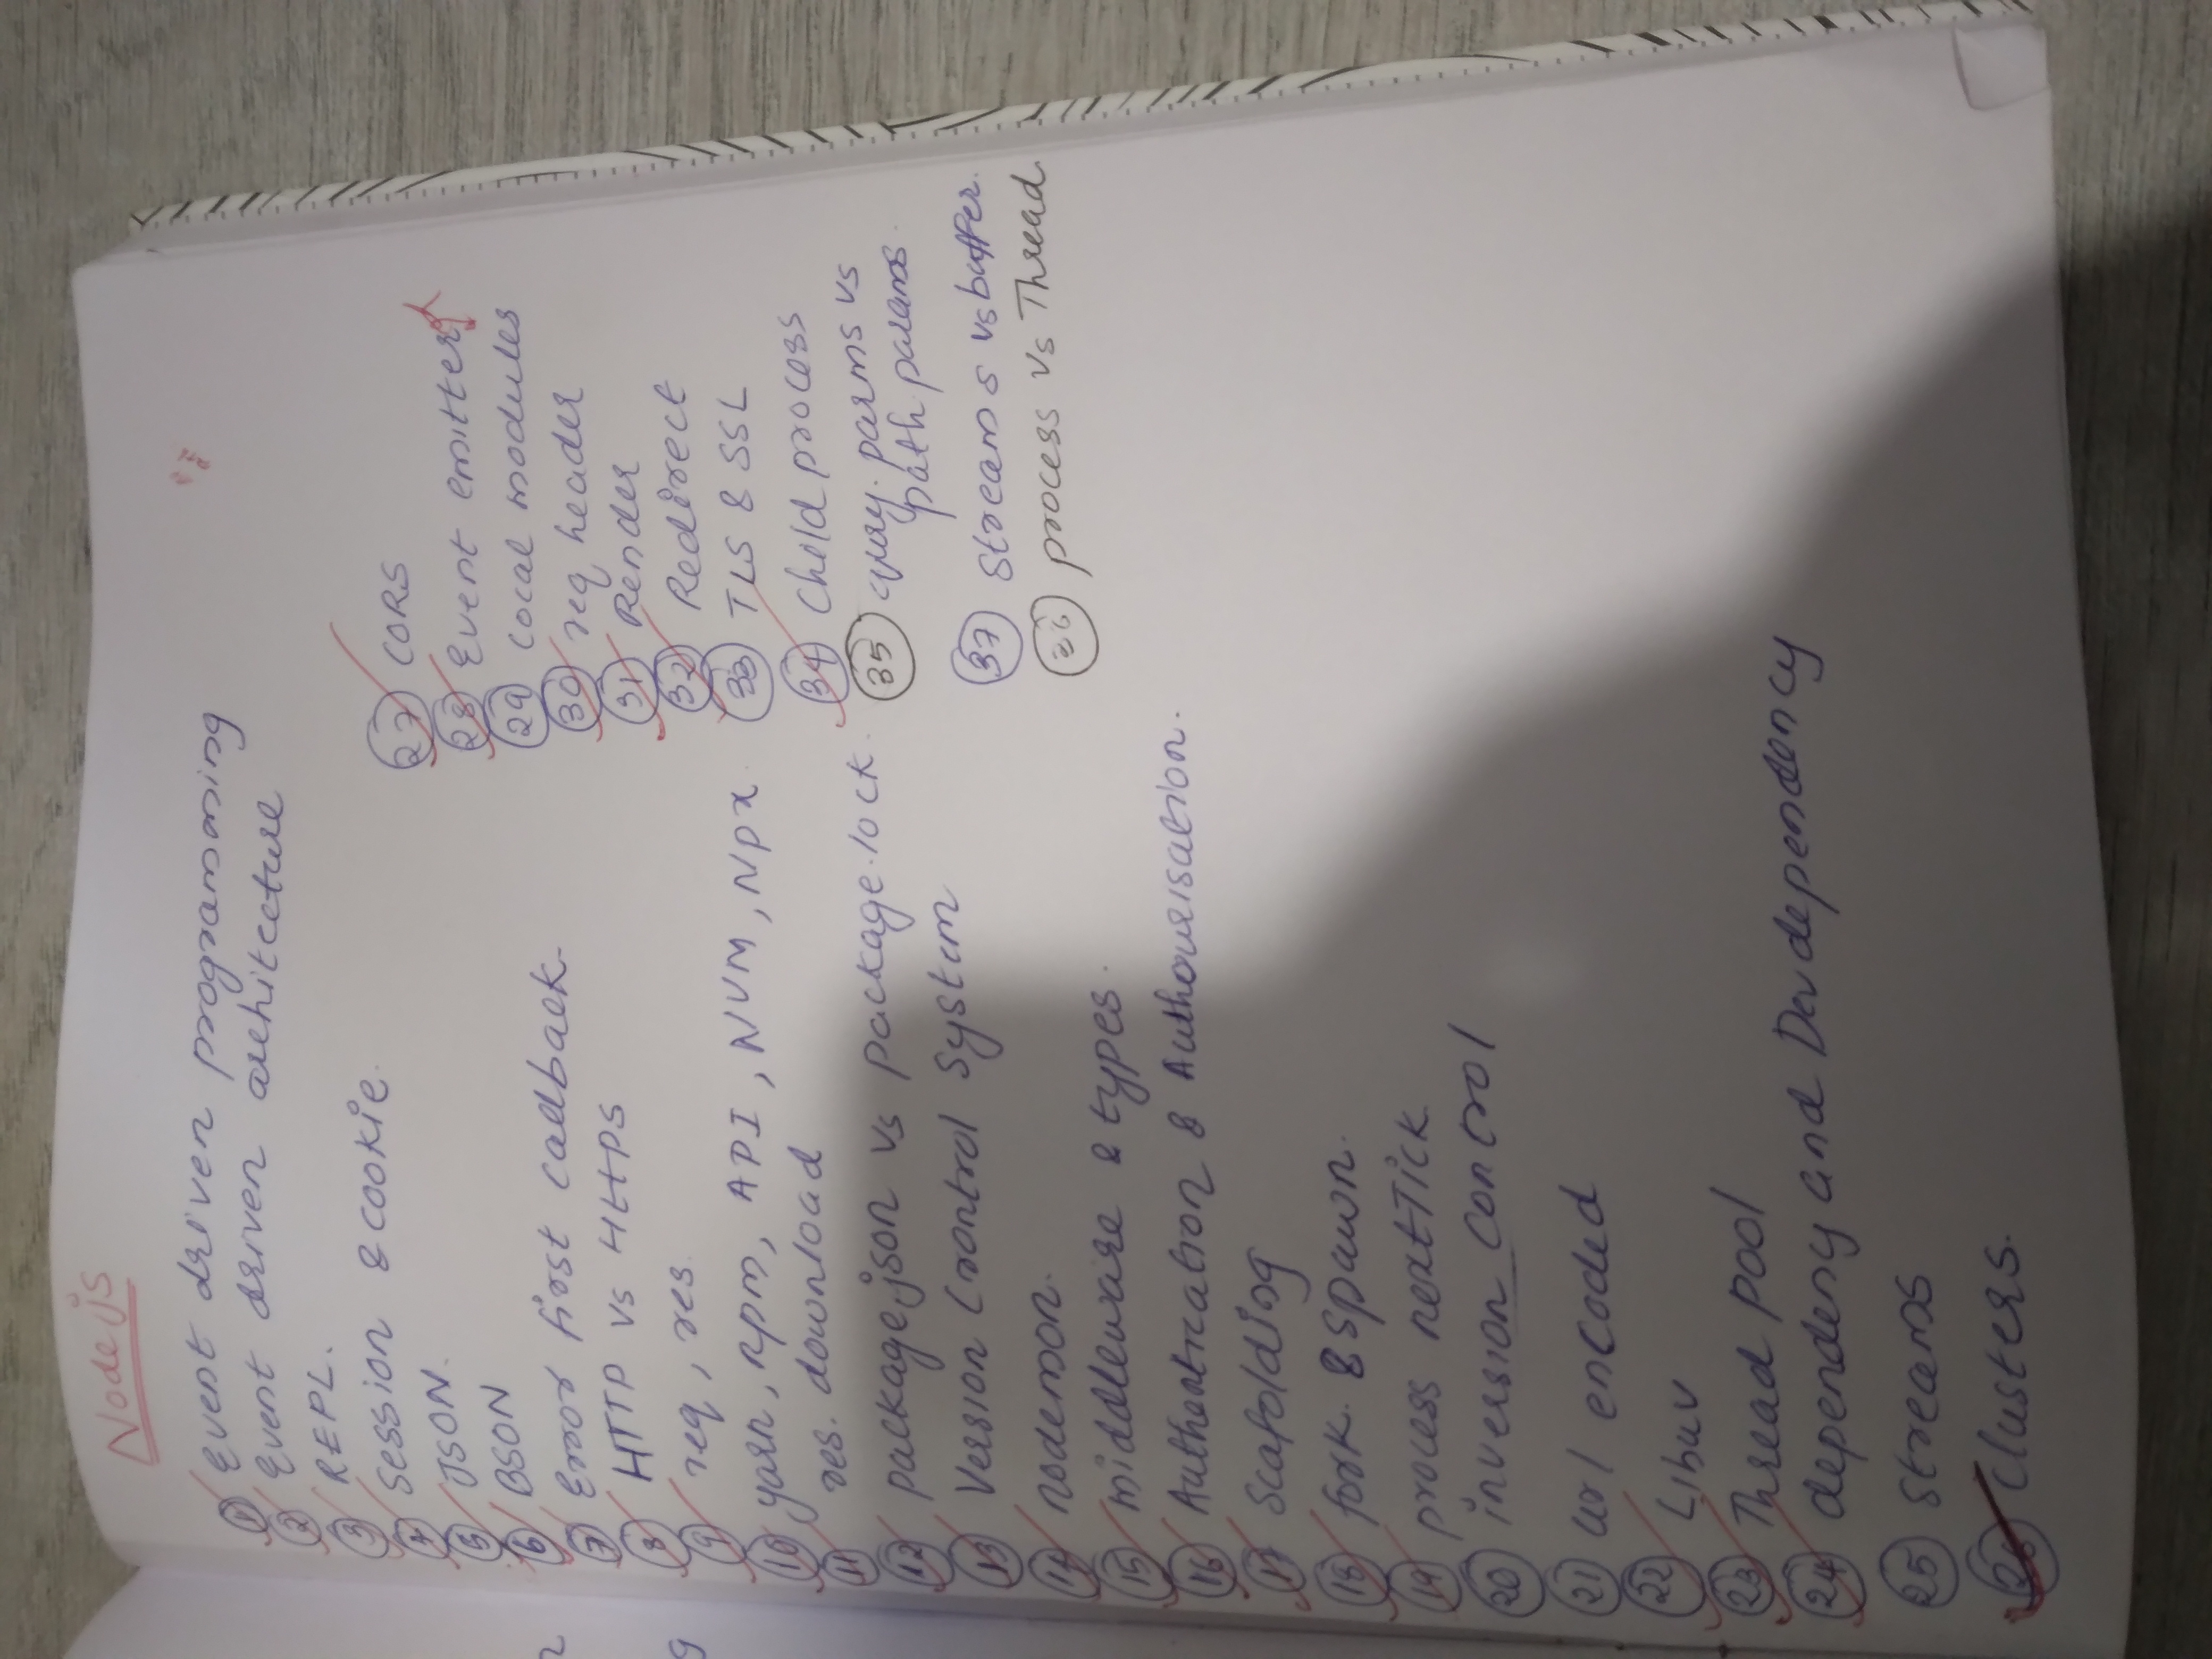 Nodejs
1 Event driven programming
2 Event driven architecture
3 REPL.
4 Session & cookie.
5 JSON.
6 BSON
7 Error first callback
8 HTTP vs HttPS
9 req, res.
10 yarn, npm, API, NVM, Npx
11 res. download
12 package.json vs package.lock
13 Version Control System
14 nodemon.
15 middleware & types.
16 Authentication & Authourisation.
17 Scafolding
18 fork. & spawn.
19 process nextTick
20 inversion control
21 url encoded
22 Libuv
23 Thread pool
24 dependeny and Devdependency
25 Streams
26 Clusters.
27 CORS
28 Event emitter
29 Local modules
30 req header
31 Render
32 Redirect
33 TLS & SSL
34 Child process
35 qury. parms vs
path params
37 streams vs buffer.
36 process vs Thread